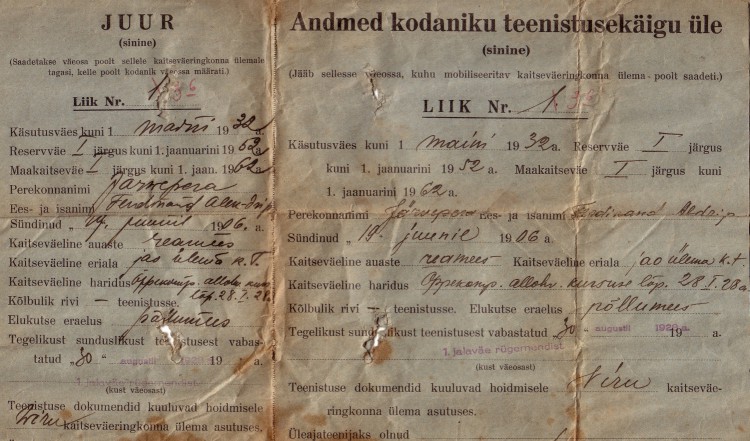 JUUR
(sinine)
(Saadetakse väeosa poolt sellele kaitseväeringkonna ülemale
tagasi, kelle poolt kodanik väeossa määrati.)
Liik Nr. 1
Käsutusväes kuni 1 maini 1932 a.
Reservväe I järgus kuni 1. jaanuarini 1952 a.
Maakaitseväe I järgus kuni 1. jaan. 1962 a.
Perekonnanimi Järvepera
Ees- ja isanimi Ferdinand
Sündinud „19." juunil 1906 a.
Kaitseväeline auaste reamees
Kaitseväeline eriala jao ülema k.t.
Kaitseväeline haridus Õppekomp. allohv. kurs.
lõp. 28.I.28.
Kõlbulik rivi — teenistusse.
Elukutse eraelus põllumees
Tegelikust sunduslikust teenistusest vabas-
tatud „30" augustil 19 a.
1. jalaväe rügemendist
(kust väeosast)
Teenistuse dokumendid kuuluvad hoidmisele
Viru kaitseväeringkonna ülema asutuses.
Andmed kodaniku teenistusekäigu üle
(sinine)
(Jääb sellesse väeossa, kuhu mobiliseeritav kaitseväeringkonna ülema poolt saadeti.)
LIIK Nr. 1
Käsutusväes kuni 1 maini 1932 a. Reservväe I järgus
kuni 1. jaanuarini 1952 a. Maakaitseväe I järgus kuni
1. jaanuarini 1962 a.
Perekonnanimi Järvepera Ees- ja isanimi Ferdinand
Sündinud „19." juunil 1906 a.
Kaitseväeline auaste reamees Kaitseväeline eriala jao ülema k.t.
Kaitseväeline haridus Õppekomp. allohv. kursuse lõp. 28.I.28a.
Kõlbulik rivi — teenistusse. Elukutse eraelus põllumees
Tegelikust sunduslikust teenistusest vabastatud „30" augustil 19 a.
1. jalaväe rügemendist
(kust väeosast)
Teenistuse dokumendid kuuluvad hoidmisele Viru kaitseväe-
ringkonna ülema asutuses.
Üleajateenijaks olnud